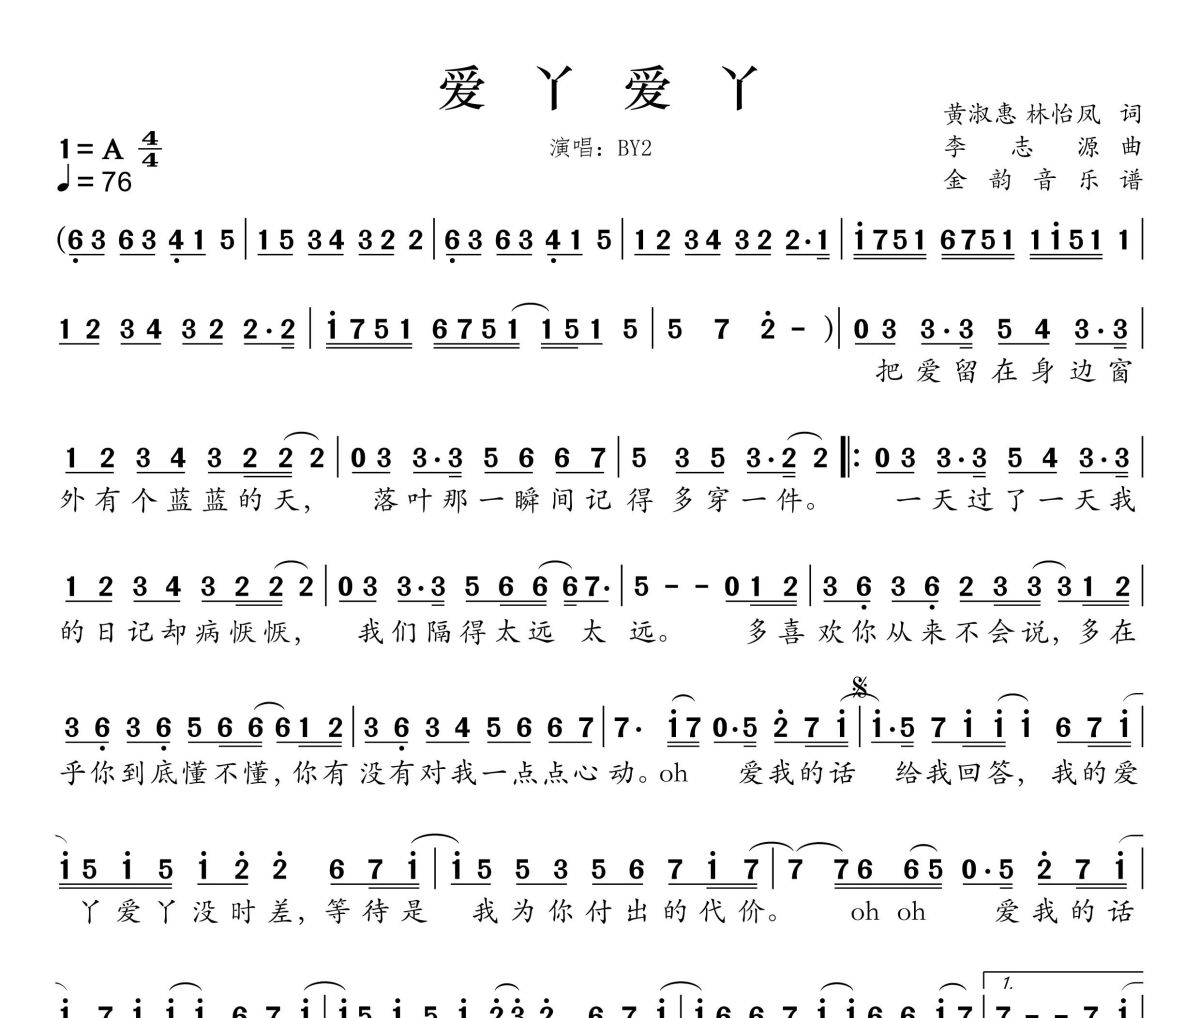 爱丫爱丫
演唱：BY2
黄淑惠 林怡凤 词
李志源 曲
金韵音乐谱
1=A 4/4
♩=76
(63 63 41 5 | 15 34 322 2 | 63 63 41 5 | 12 34 32 2·1 | i751 6751 1i51 1 |
12 34 32 2·2 | i751 6751 151 5 | 5 7 2 - ) | 03 3·3 54 3·3 |
把爱留在身边窗
12 34 322 2 | 03 3·3 56 67 | 5 35 3·2 2 ‖: 03 3·3 54 3·3 |
外有个蓝蓝的天， 落叶那一瞬间记得多穿一件。 一天过了一天我
12 34 322 2 | 03 3·3 566 67· | 5 - - 012 | 36 36 233 312 |
的日记却病恹恹， 我们隔得太远 太远。 多喜欢你从来不会说，多在
36 36 566 612 | 36 34 56 67 | 7· i7 0·5 27i | i·5 7ii i 67i |
乎你到底懂不懂，你有没有对我一点点心动。oh 爱我的话 给我回答，我的爱
i5i5 i2 2 67i | i5 53 56 7i7 | 7 76 65 0·5 27i |
丫爱丫没时差，等待是 我为你付出的代价。 oh oh 爱我的话
1.